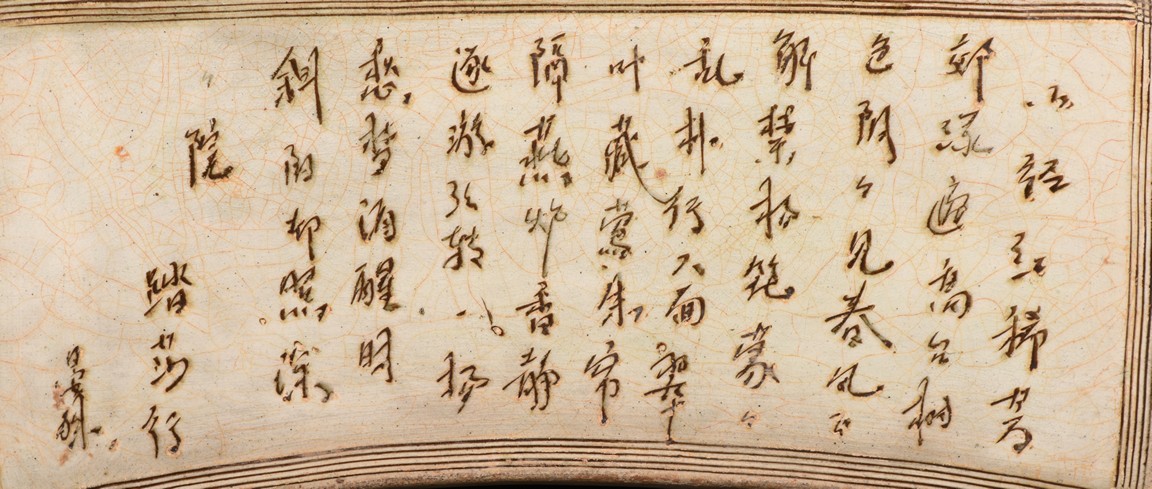 小径红稀芳
郊绿遍高台树
色阴々见春风不
解禁杨花蒙々
乱扑行人面翠
叶藏莺朱帘
隔燕炉香静
逐游丝转一场
愁梦酒醒时
斜阳却照深々
院
踏莎行